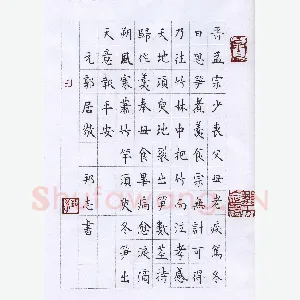 晋孟宗少丧父母老疾篤冬
日思笋煮羹食宗無計可得
乃往竹林中抱竹而泣孝感
天地須臾地裂出笋數莖持
歸作羹奉母食畢病愈淚滴
朔風寒蕭竹竿須臾冬笋出
天意報平安
元郭居敬 邦志書
Shufawang.CN